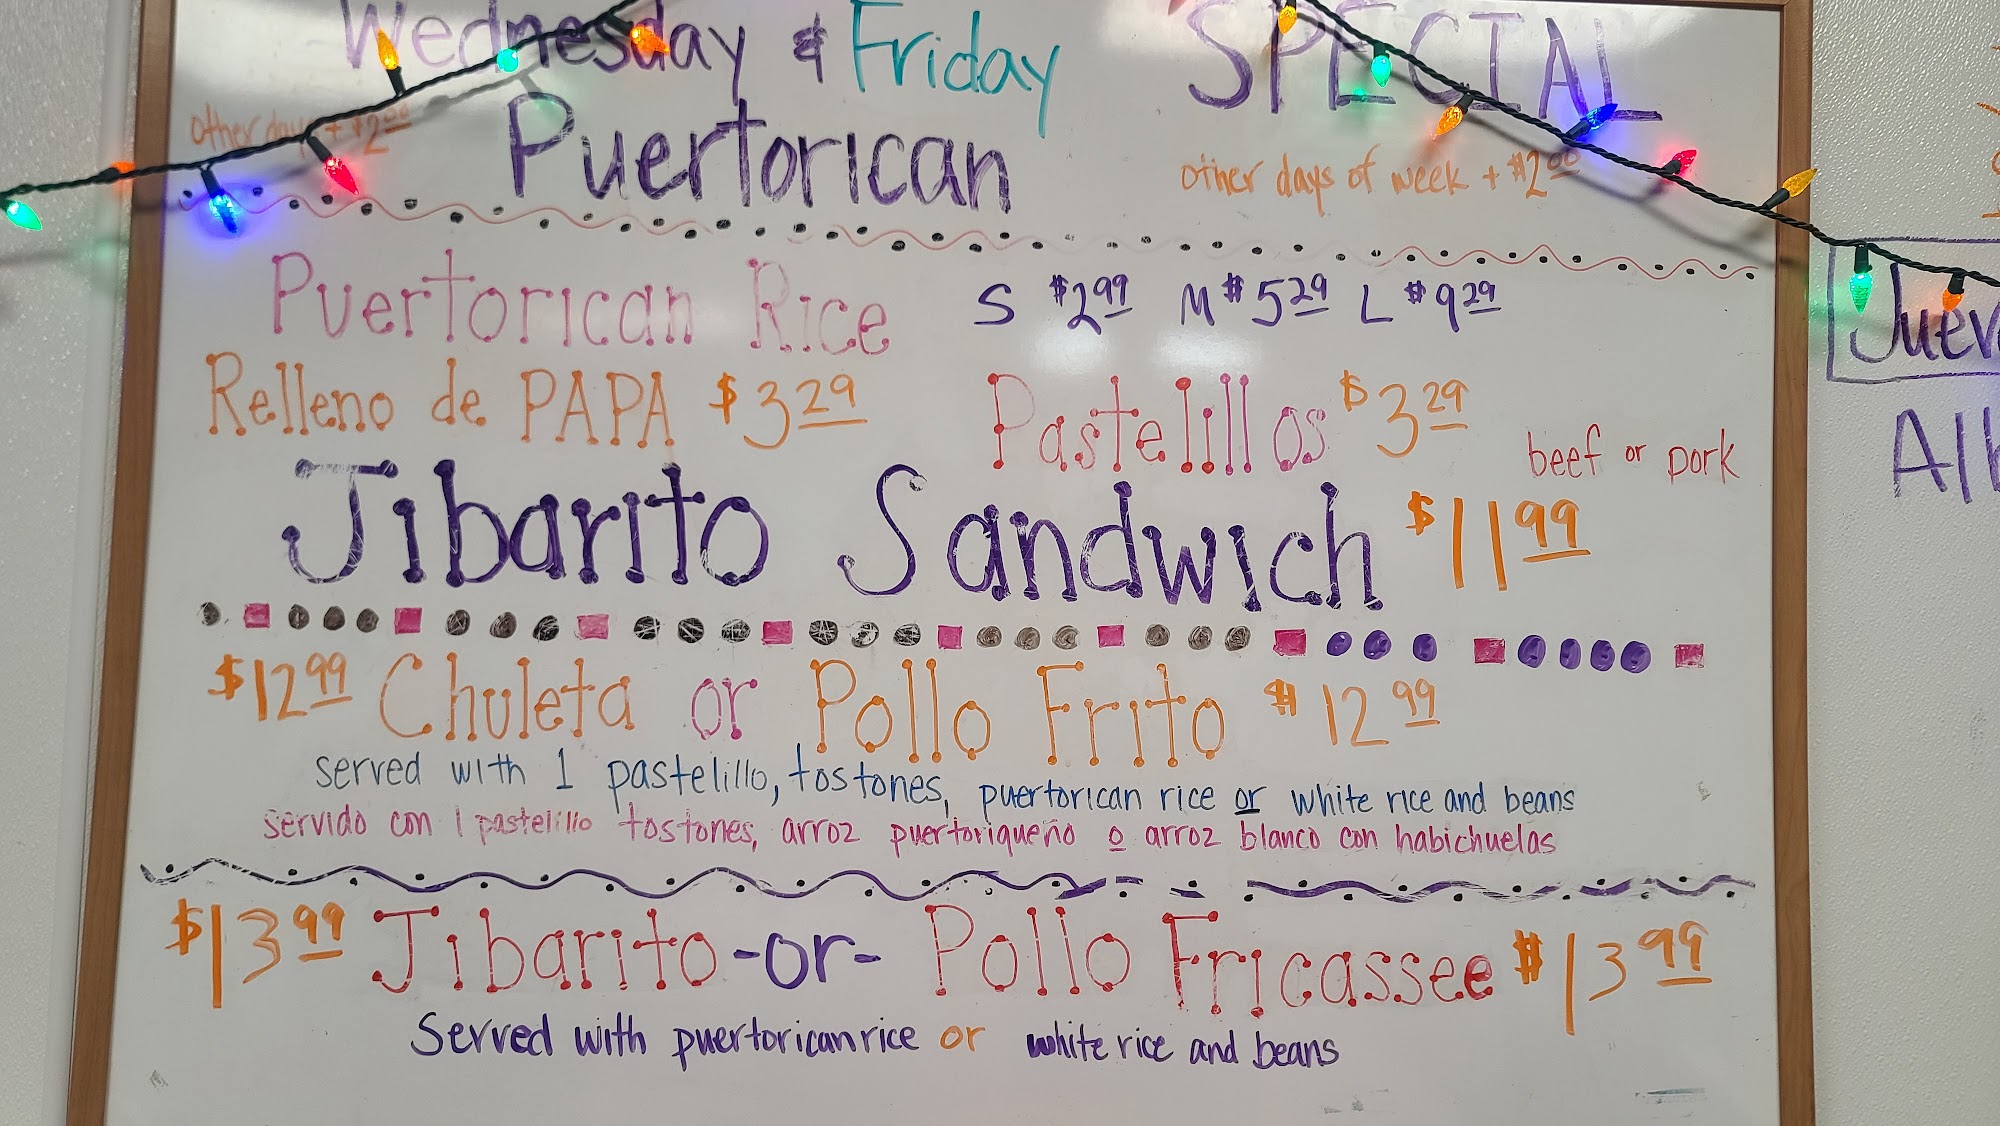 Wednesday & Friday SPECIAL
other days + $2.00
Puertorican
other days of week + $2.00
Puertorican Rice S $2.99 M $5.29 L $9.29
Relleno de PAPA $3.29 Pastelillos $3.29
beef or pork
Jibarito Sandwich $11.99
$12.99 Chuleta or Pollo Frito $12.99
served with 1 pastelillo, tostones, puertorican rice or white rice and beans
servido con 1 pastelillo tostones, arroz puertoriqueño o arroz blanco con habichuelas
$13.99 Jibarito -or- Pollo Fricassee $13.99
Served with puertorican rice or white rice and beans